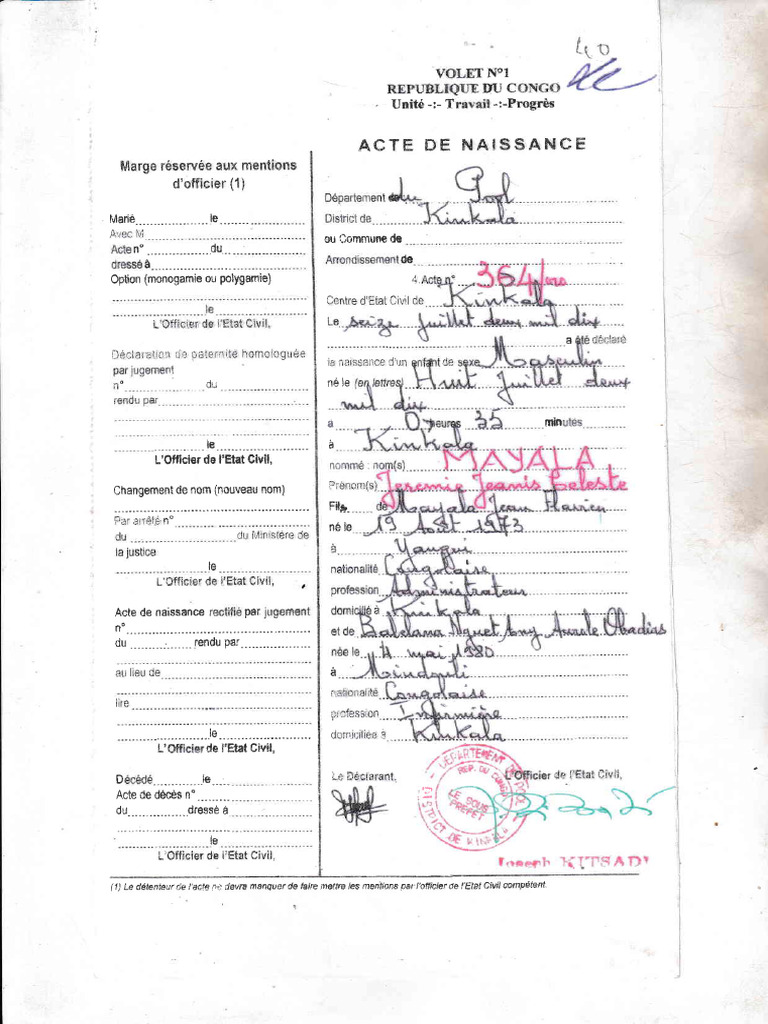 40
VOLET N°1
REPUBLIQUE DU CONGO
Unité -:- Travail -:-Progrès
ACTE DE NAISSANCE
Marge réservée aux mentions
d'officier (1)
Marié le
Avec M
Acte n° du
dressé à
Option (monogamie ou polygamie)
le
L'Officier de l'Etat Civil,
Déclaration de paternité homologuée
par jugement
n° du
rendu par
le
L'Officier de l'Etat Civil,
Changement de nom (nouveau nom)
Par arrêté n°
du du Ministère de
la justice
le
L'Officier de l'Etat Civil,
Acte de naissance rectifié par jugement
n°
du rendu par
au lieu de
lire
le
L'Officier de l'Etat Civil,
Décédé le
Acte de décès n°
du dressé à
le
L'Officier de l'Etat Civil,
Département du Pool
District de Kinkala
ou Commune de
Arrondissement de
4.Acte n° 364/
Centre d'Etat Civil de Kinkala
Le seize juillet deux mil dix
a été déclaré
la naissance d'un enfant de sexe Masculin
né le (en lettres) Huit Juillet deux
mil dix
a 0 heures 35 minutes
à Kinkala
nommé : nom(s) MAYALA
Prénom(s) Jeremie Jeanis Celeste
Fils de Mayala Jean Flavien
né le 19 Août 1973
à
nationalité Congolaise
profession Administrateur
domicilié à Kinkala
et de Obadias
née le 4 mai 1980
à Mindouli
nationalité Congolaise
profession Infirmière
domiciliée à Kinkala
Le Déclarant,
L'Officier de l'Etat Civil,
DEPARTEMENT DU POOL
REP. DU CONGO
LE SOUS
PREFET
DISTRICT DE KINKALA
Joseph KITSADI
(1) Le détenteur de l'acte ne devra manquer de faire mettre les mentions par l'officier de l'Etat Civil compétent.